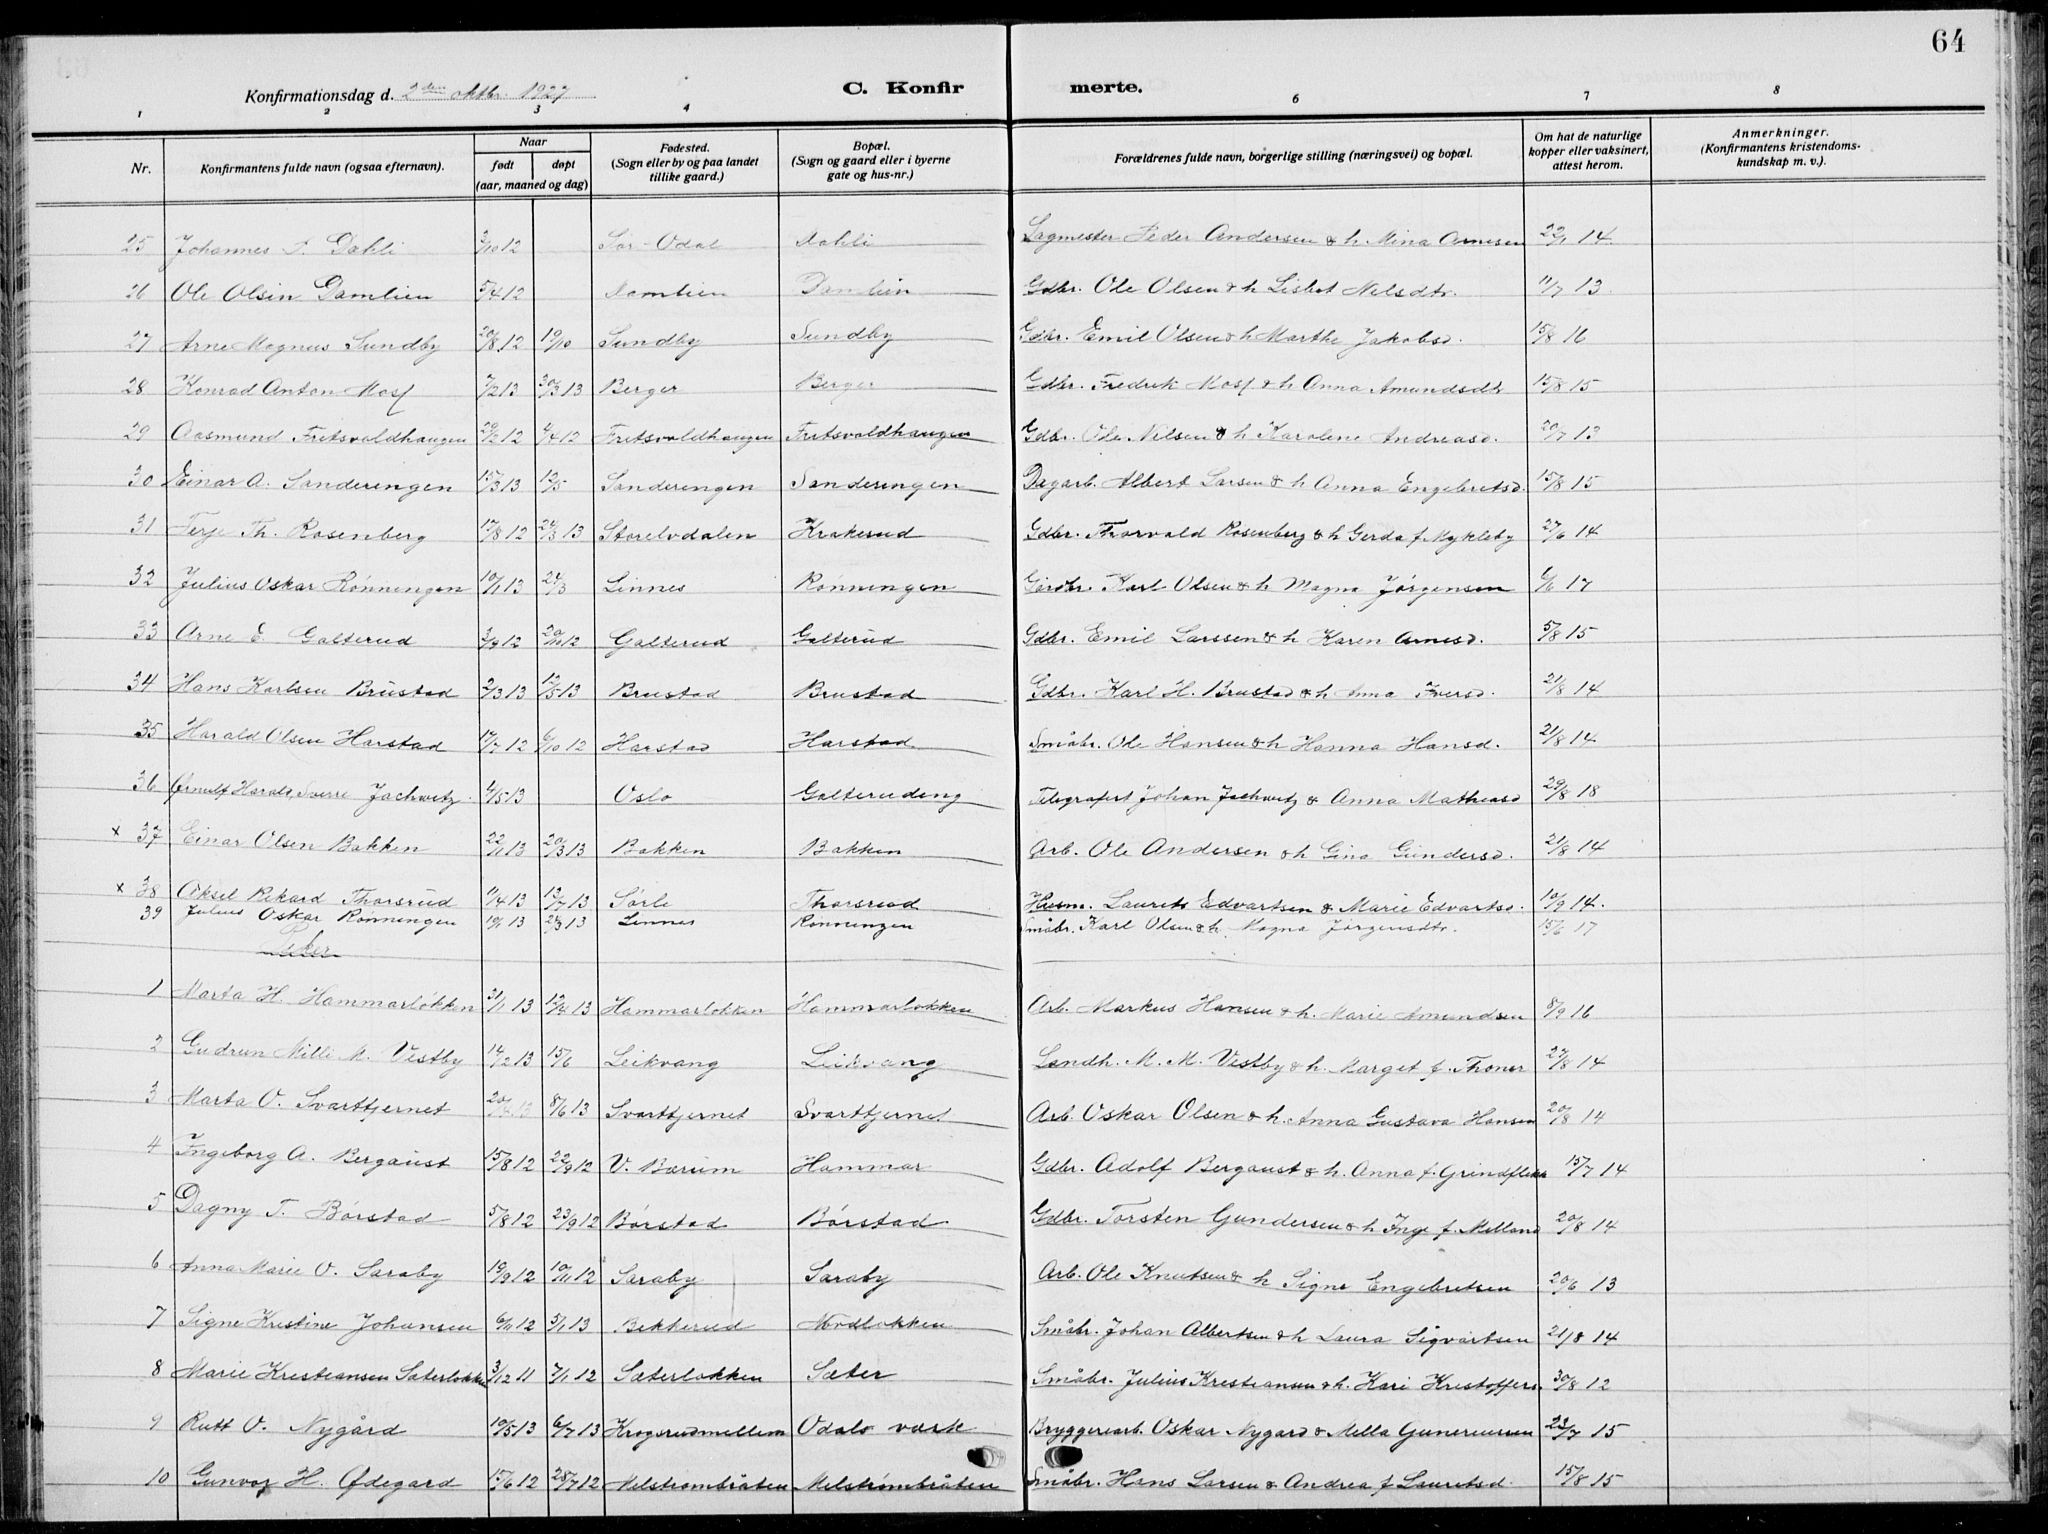 64
Konfirmationsdag d. 2den Oktbr. 1927
C. Konfirmerte.
1 2 3 4 6 7 8
Nr. Konfirmantens fulde navn (ogsaa efternavn). Naar født døpt (aar, maaned og dag) Fødested. (Sogn eller by og paa landet tillike gaard.) Bopæl. (Sogn og gaard eller i byerne gate og hus-nr.) Forældrenes fulde navn, borgerlige stilling (næringsvei) og bopæl. Om hat de naturlige kopper eller vaksinert, attest herom. Anmerkninger. (Konfirmantens kristendomskundskap m. v.).
25 Johannes P. Dahli 3/10 12 Sør-Odal Dahli Sagmester Peder Andersen & h. Mina Arnesen 22/1 14
26 Ole Olsin Damlien 5/4 12 Damlien Damlien Gdbr. Ole Olsen & h Lisbet Nelsdtr. 11/7 13
27 Arne Magnus Sundby 20/8 12 19/10 Sundby Sundby Gdbr. Emil Olsen & h Marthe Jakobsd. 15/8 16
28 Konrad Anton Mosf 7/2 13 30/3 13 Berger Berger Gdbr. Fredrik Mosf & h Anna Amundsdtr 15/8 15
29 Aasmund Fretsvoldhaugen 29/2 12 4/4 12 Fretsvoldhaugen Fretsvoldhaugen Gdbr. Ole Nilsen & h Karolene Andreasd. 20/7 13
30 Einar A. Sanderengen 15/3 13 12/5 Sanderengen Sanderengen Dagarb. Albert Larsen & h Anna Engebretsd. 15/8 15
31 Terje Th. Rosenberg 17/8 12 24/3 13 Storelvdalen Krakerud Gdbr. Thorvald Rosenberg & h Gerda f. Mykleby 27/6 14
32 Julius Oskar Rønningen 10/1 13 24/3 Linnes Rønningen Karl Olsen & h Magna Jørgensen 6/6 17
33 Arne E. Galterud 3/9 12 20/10 12 Galterud Galterud Gdbr. Emil Larssen & h Karen Arnesd. 5/8 15
34 Hans Karlsen Brustad 2/3 13 12/5 13 Brustad Brustad Gdbr. Karl H. Brustad & h Anna Iversd. 21/8 14
35 Harald Olsen Harstad 17/7 12 6/10 12 Harstad Harstad Småbr. Ole Hansen & h Hanna Hansd. 21/8 14
36 Ørnulf Harald Sverre Jachwitz 4/5 13 Oslo Galterudeng Telegrafist Johan Jachwitz & Anna Matheasd 29/8 18
x 37 Einar Olsen Bakken 22/1 13 20/3 13 Bakken Bakken Arb. Ole Andersen & h Gina Gundersd. 21/8 14
x 38 Aksel Rikard Thorsrud 11/4 13 13/7 13 Sørli Thorsrud Husm. Laurits Edvartsen & Marie Edvartsd. 10/9 14.
39 Julius Oskar Rønningen 10/1 13 24/3 13 Linnes Rønningen Småbr. Karl Olsen & h Magna Jørgensdtr. 15/6 17
Piker
1 Marta H. Hammarløkken 31/1 13 12/4 13 Hammarløkken Hammarløkken Arb. Markus Hansen & h. Marie Amundsen 8/9 16
2 Gudrun Milli M. Vestby 14/2 13 15/6 Leikvang Leikvang Landh. M. M. Vestby & h. Marget f. Thoner 27/8 14
3 Marta O. Svarttjernet 8/6 13 Svarttjernet Svarttjernet Arb. Oskar Olsen & h. Anna Gustava Hansen 20/8 14
4 Ingeborg A. Bergaust 15/8 12 22/9 12 V. Bærum Hammar Gdbr. Adolf Bergaust & h. Anna f. 15/7 14
5 Dagny T. Børstad 5/8 12 23/9 12 Børstad Børstad Gdbr. Torsten Gundersen & h Inge f. Melland 20/8 14
6 Anna Marie O. Saraby 19/9 12 10/11 12 Saraby Saraby Arb. Ole Knutsen & h Signe Engebretsen 20/6 13
7 Signe Kristine Johansen 6/11 12 5/1 13 Bekkerud Modløkken Småbr. Johan Albertsen & h Laura Sigvartsen 21/8 14
8 Marie Kristiansen Sæterløkken 3/12 11 7/1 12 Sæterløkken Sæter Småbr. Julius Kristiansen & h. Kari Kristoffers. 30/8 12
9 Rutt O. Nygård 10/5 13 6/7 13 Krogsrudmellem Odals værk Bryggeriarb. Oskar Nygard & Milla Gunereiussen 23/7 15
10 Gunvor H. Ødegard 15/6 12 28/7 12 Melstrømbråten Melstrømbråten Småbr. Hans Larsen & Andrea f Lauretsd. 15/8 15